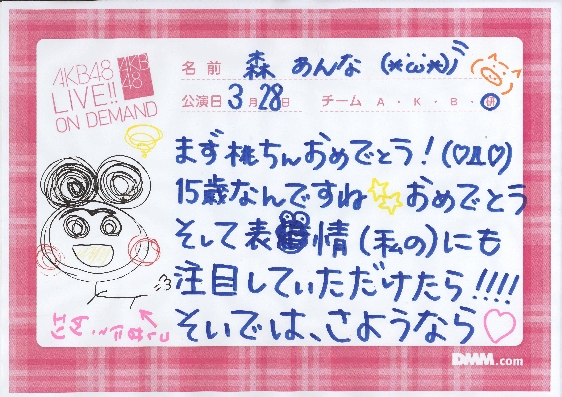 AKB48
LIVE!!
ON DEMAND
AKB
48
名前 森 あんな (*'ω'*)ﾉ
公演日 3月28日 チーム A・K・B・研
まず桃ちんおめでとう!(♡Д♡)
15歳なんですね☆☆おめでとう
そして表情(私の)にも
注目していただけたら!!!!
そいでは、さようなら♡
DMM.com